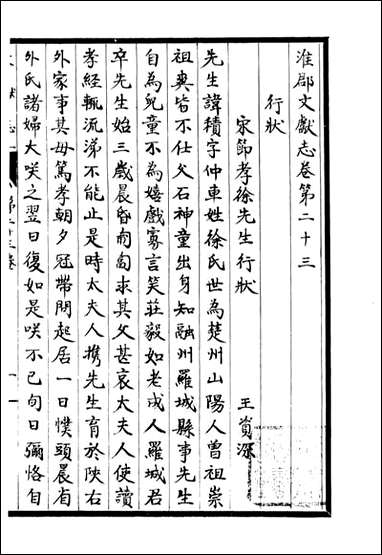 淮郡文獻志卷第二十三
行狀
宋節孝徐先生行狀
王資深
先生諱積字仲車姓徐氏世為楚州山陽人曾祖崇
祖奭皆不仕父石神童出身知融州羅城縣事先生
自為兒童不為嬉戲寡言笑莊毅如老成人羅城君
卒先生始三歲晨昏匍匐求其父甚哀太夫人使讀
孝經輒流涕不能止是時太夫人携先生育於陝右
外家事其母篤孝朝夕冠帶問起居一日幞頭晨省
外氏諸婦大咲之翌日復如是咲不已旬日彌恪自